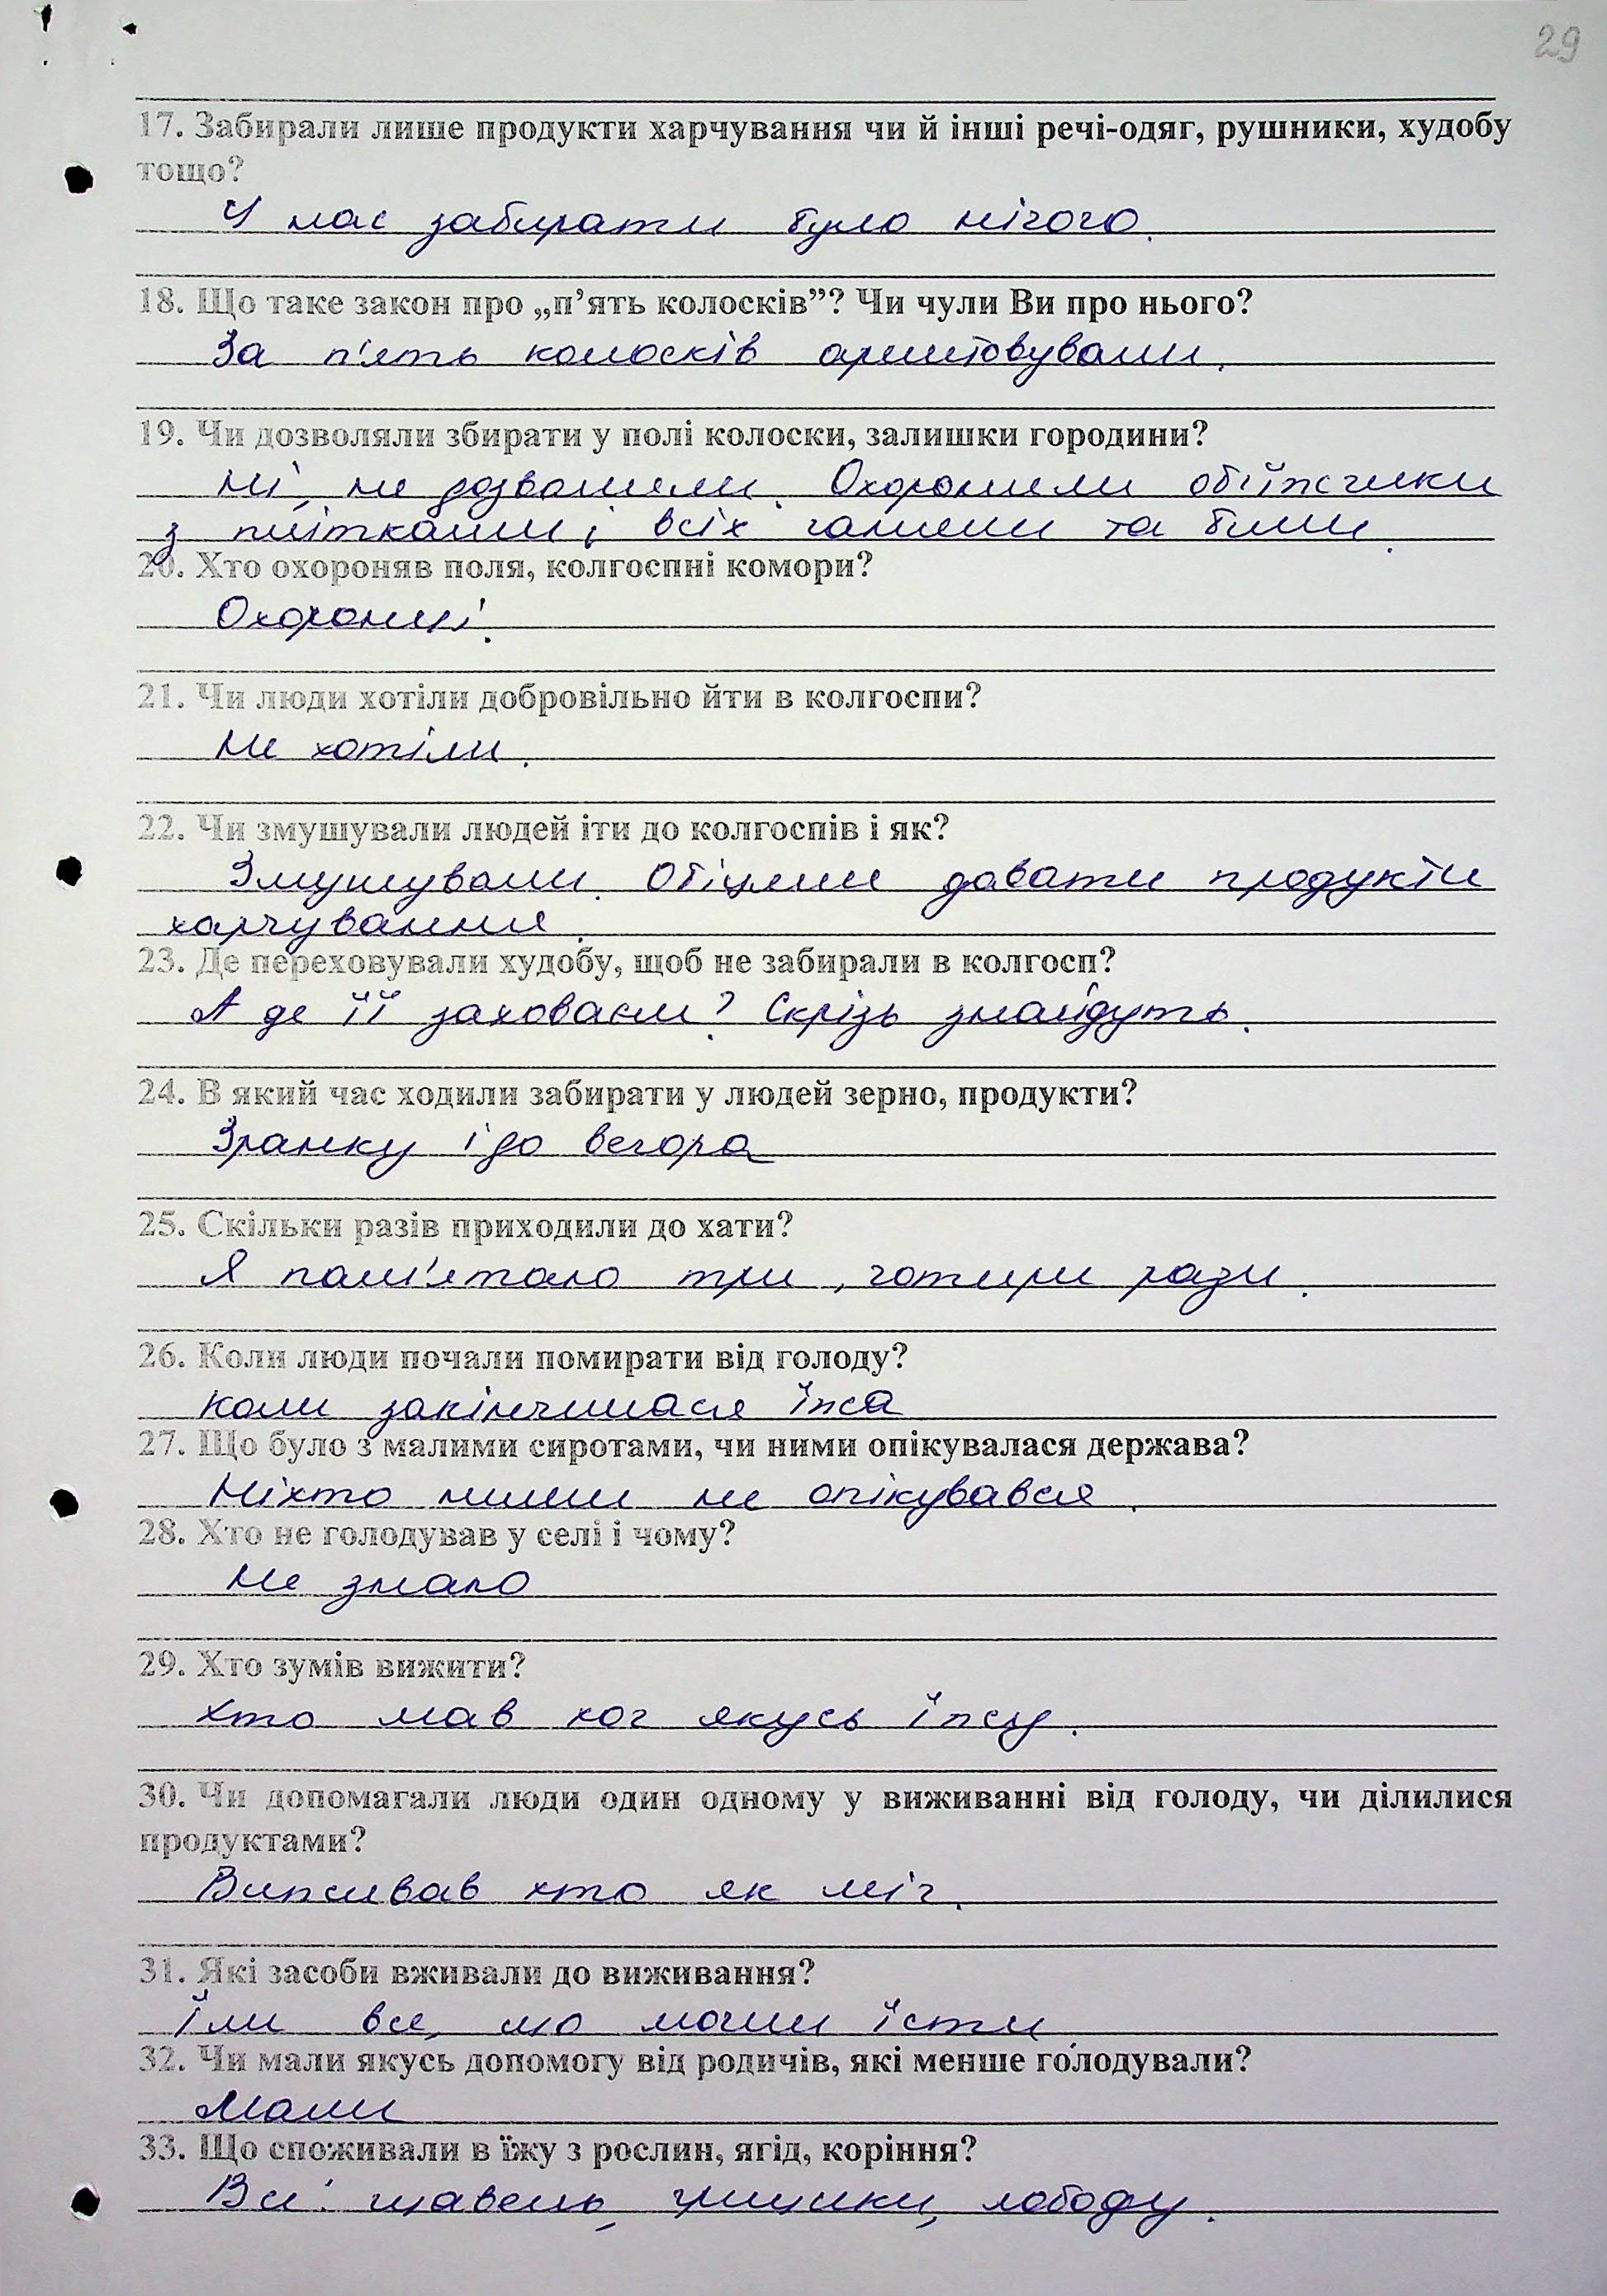 29
17. Забирали лише продукти харчування чи й інші речі-одяг, рушники, худобу
тощо?
У нас забирати було нічого.
18. Що таке закон про „п’ять колосків”? Чи чули Ви про нього?
За п'ять колосків арештовували.
19. Чи дозволяли збирати у полі колоски, залишки городини?
Ні, не дозволяли. Охороняли об'їжчики
з плітками і всіх ганяли та били.
20. Хто охороняв поля, колгоспні комори?
Охоронці.
21. Чи люди хотіли добровільно йти в колгоспи?
Не хотіли.
22. Чи змушували людей іти до колгоспів і як?
Змушували. Обіцяли давати продукти
харчування.
23. Де переховували худобу, щоб не забирали в колгосп?
А де її заховаєм? Скрізь знайдуть.
24. В який час ходили забирати у людей зерно, продукти?
Зранку і до вечора
25. Скільки разів приходили до хати?
Я пам'ятаю три, чотири рази.
26. Коли люди почали помирати від голоду?
Коли закінчилася їжа
27. Що було з малими сиротами, чи ними опікувалася держава?
Ніхто ними не опікувався.
28. Хто не голодував у селі і чому?
Не знаю
29. Хто зумів вижити?
Хто мав хоч якусь їжу.
30. Чи допомагали люди один одному у виживанні від голоду, чи ділилися
продуктами?
Виживав хто як міг.
31. Які засоби вживали до виживання?
Їли все, що могли їсти
32. Чи мали якусь допомогу від родичів, які менше голодували?
Мали
33. Що споживали в їжу з рослин, ягід, коріння?
Все: щавель, грицики, лободу.